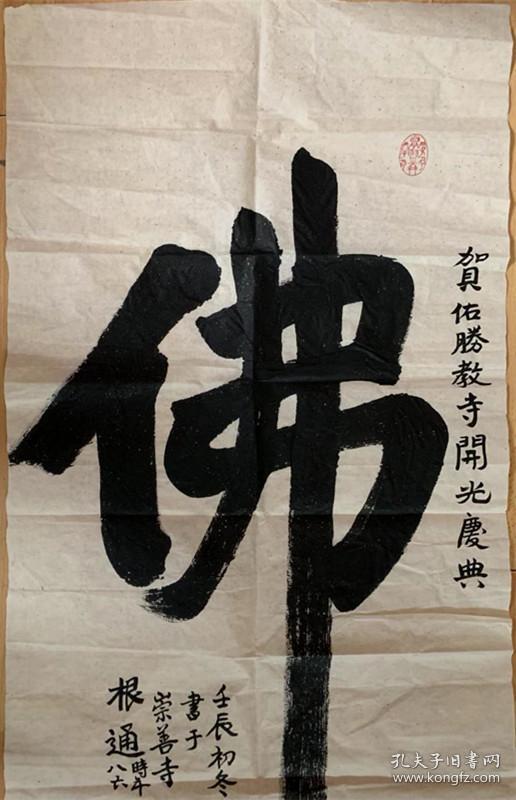 賀佑勝教寺開光慶典
佛
壬辰初冬
書于
崇善寺
根通
時年
八六
孔夫子旧书网
www.kongfz.com